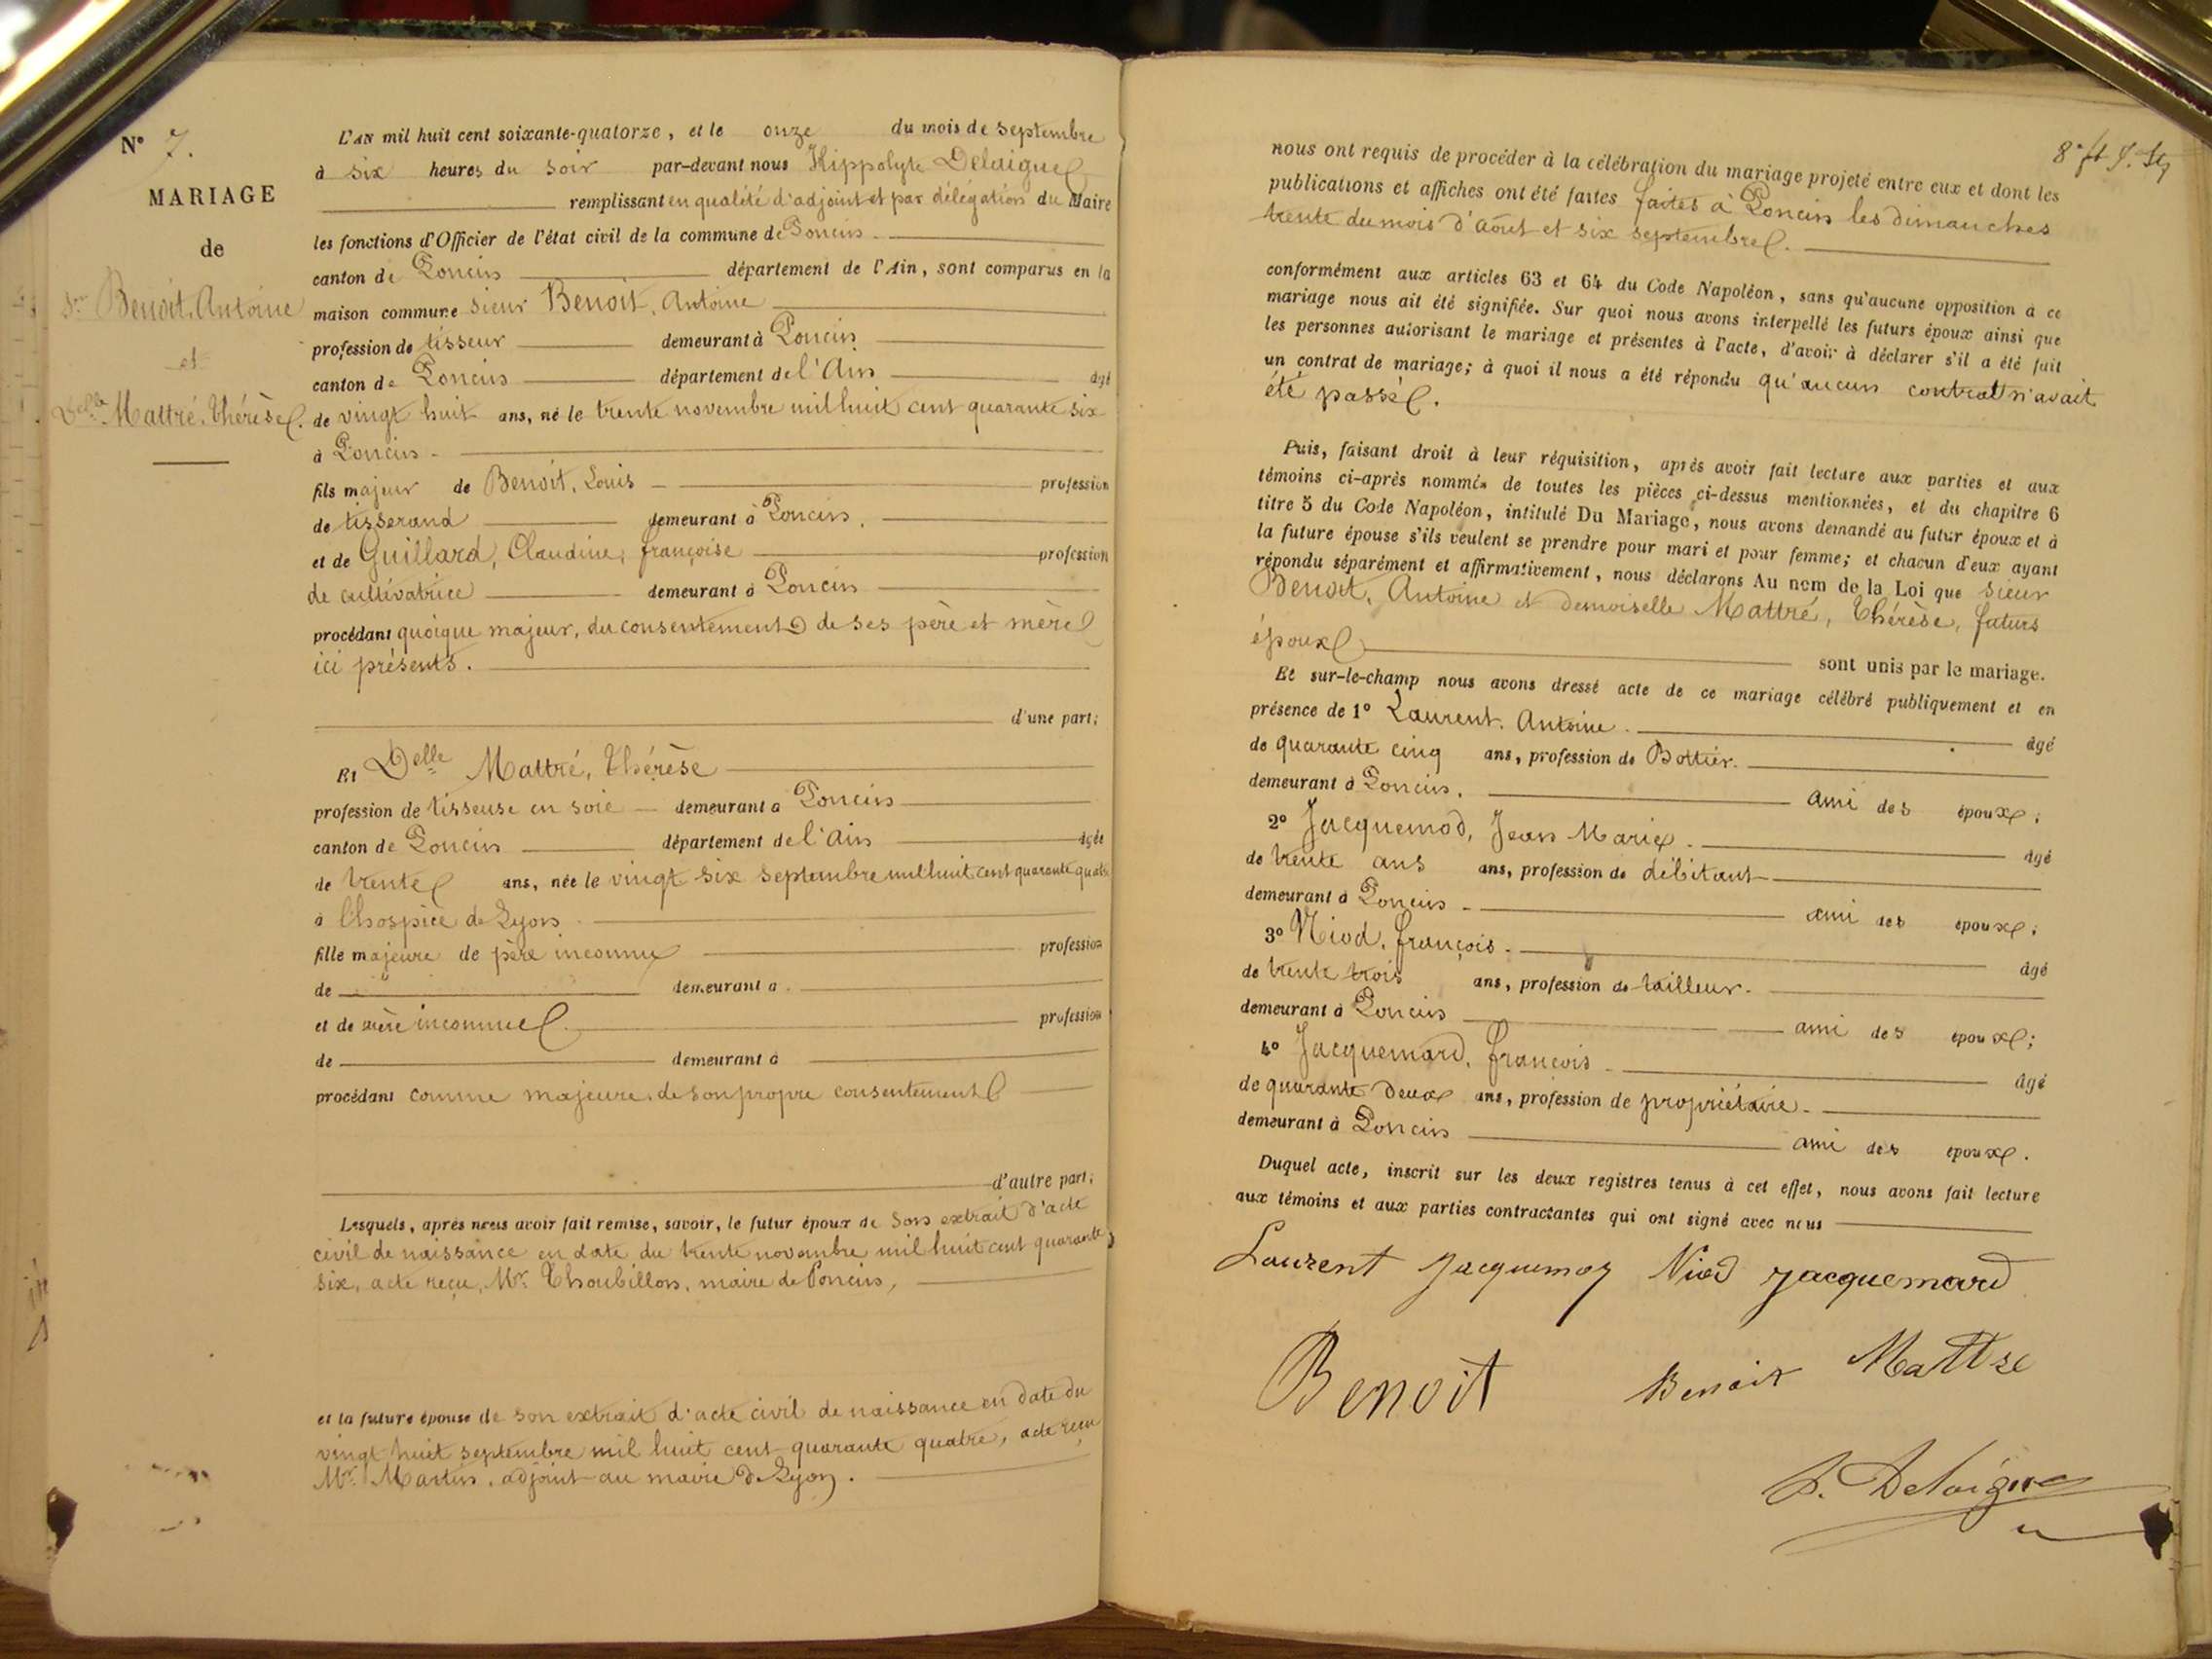 N° 7.
MARIAGE
de
Sr Benoit, Antoine
et
Delle Mattré, Thérèse.
L'AN mil huit cent soixante-quatorze, et le onze du mois de septembre
à six heures du soir par-devant nous Hippolyte Delaigue
remplissant en qualité d'adjoint et par délégation du Maire
les fonctions d'Officier de l'état civil de la commune de Poncin
canton de Poncin département de l'Ain, sont comparus en la
maison commune sieur Benoit, Antoine
profession de tisseur demeurant à Poncin
canton de Poncin département de l'Ain âgé
de vingt huit ans, né le trente novembre mil huit cent quarante six
à Poncin
fils majeur de Benoit, Louis profession
de tisserand demeurant à Poncin,
et de Guillard, Claudine, françoise profession
de cultivatrice demeurant à Poncin
procédant quoique majeur, du consentement de ses père et mère
ici présents.
d'une part;
Et Delle Mattré, Thérèse
profession de tisseuse en soie demeurant à Poncin
canton de Poncin département de l'Ain âgée
de trente ans, née le vingt six septembre mil huit cent quarante quatre
à l'hospice de Lyon
fille majeure de père inconnu profession
de demeurant à
et de mère inconnue profession
de demeurant à
procédant comme majeure, de son propre consentement
d'autre part;
Lesquels, après nous avoir fait remise, savoir, le futur époux de son extrait d'acte
civil de naissance en date du trente novembre mil huit cent quarante
six, acte reçu, Mr. Thoubillon, maire de Poncin,
et la future épouse de son extrait d'acte civil de naissance en date du
vingt huit septembre mil huit cent quarante quatre, acte reçu
Mr Martin, adjoint au maire de Lyon.
nous ont requis de procéder à la célébration du mariage projeté entre eux et dont les
publications et affiches ont été faites faites à Poncin les dimanches
trente du mois d'août et six septembre.
conformément aux articles 63 et 64 du Code Napoléon, sans qu'aucune opposition à ce
mariage nous ait été signifiée. Sur quoi nous avons interpellé les futurs époux ainsi que
les personnes autorisant le mariage et présentes à l'acte, d'avoir à déclarer s'il a été fait
un contrat de mariage; à quoi il nous a été répondu qu'aucun contrat n'avait
été passé.
Puis, faisant droit à leur réquisition, après avoir fait lecture aux parties et aux
témoins ci-après nommés de toutes les pièces ci-dessus mentionnées, et du chapitre 6
titre 5 du Code Napoléon, intitulé Du Mariage, nous avons demandé au futur époux et à
la future épouse s'ils veulent se prendre pour mari et pour femme; et chacun d'eux ayant
répondu séparément et affirmativement, nous déclarons Au nom de la Loi que sieur
Benoit, Antoine et demoiselle Mattré, Thérèse, futurs
époux sont unis par le mariage.
Et sur-le-champ nous avons dressé acte de ce mariage célébré publiquement et en
présence de 1° Laurent, Antoine. âgé
de quarante cinq ans, profession de Bottier.
demeurant à Poncin. ami des époux;
2° Jacquemod, Jean Marie. âgé
de trente ans ans, profession de débitant
demeurant à Poncin ami des époux;
3° Niod, françois. âgé
de trente trois ans, profession de tailleur.
demeurant à Poncin ami des époux;
4° Jacquemard, françois âgé
de quarante deux ans, profession de propriétaire.
demeurant à Poncin ami des époux.
Duquel acte, inscrit sur les deux registres tenus à cet effet, nous avons fait lecture
aux témoins et aux parties contractantes qui ont signé avec nous
Laurent Jacquemoz Niod Jacquemard
Benoit Benoit Mattre